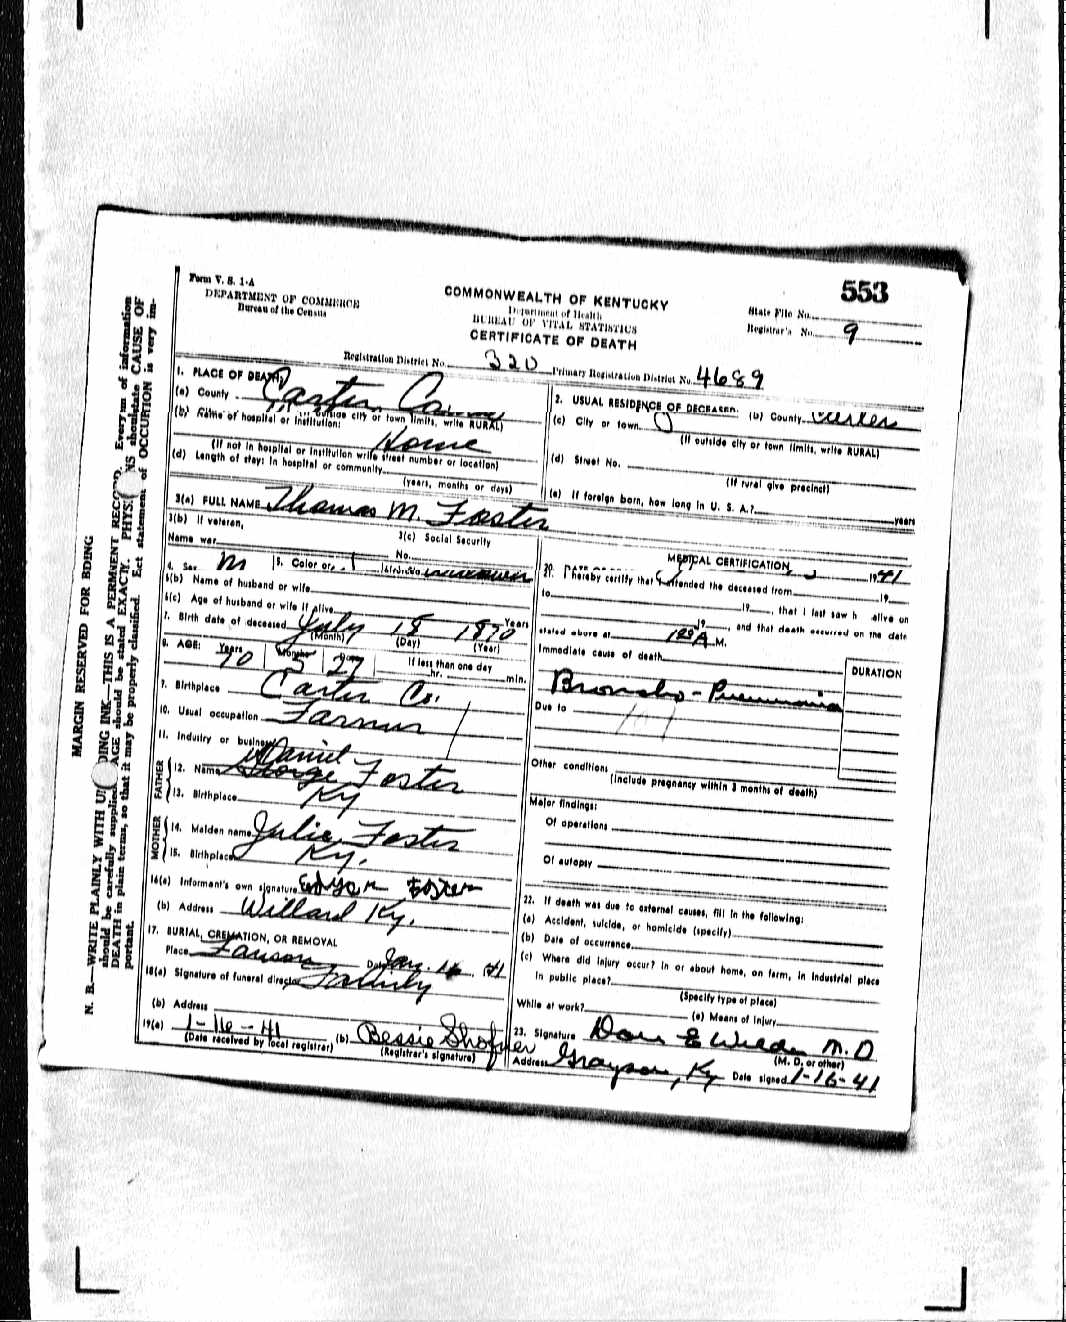 Form V. S. 1-A
DEPARTMENT OF COMMERCE
Bureau of the Census
COMMONWEALTH OF KENTUCKY
Department of Health
BUREAU OF VITAL STATISTICS
CERTIFICATE OF DEATH
553
State File No.
Registrar's No. 9
Registration District No. 320
Primary Registration District No. 4689
1. PLACE OF DEATH:
(a) County Carter
outside city or town limits, write RURAL)
(b) Name of hospital or institution:
Home
(If not in hospital or institution write street number or location)
(d) Length of stay: In hospital or community
(years, months or days)
2. USUAL RESIDENCE OF DECEASED:
(b) County Carter
(c) City or town
(If outside city or town limits, write RURAL)
(d) Street No.
(If rural give precinct)
(e) If foreign born, how long in U. S. A.? years
3(a) FULL NAME Thomas M. Foster
3(b) If veteran,
Name war
3(c) Social Security
No.
4. Sex M
5. Color or
6(b) Name of husband or wife
6(c) Age of husband or wife if alive Years
7. Birth date of deceased July 18 1870
(Month) (Day) (Year)
8. AGE: Years Months
70 5 27
If less than one day
hr. min.
9. Birthplace Carter Co.
10. Usual occupation Farmer
11. Industry or business
FATHER
12. Name Daniel
George Foster
13. Birthplace Ky
MOTHER
14. Maiden name Julia Foster
15. Birthplace Ky.
16(a) Informant's own signature Foster
(b) Address Willard Ky.
17. BURIAL, CREMATION, OR REMOVAL
Place Jan. 16 41
18(a) Signature of funeral director Family
(b) Address
19(a) 1-16-41 (b) Bessie Shofner
(Date received by local registrar) (Registrar's signature)
MEDICAL CERTIFICATION
20. 1941
21. I hereby certify that I attended the deceased from 19
to 19 , that I last saw h alive on
19 , and that death occurred on the date
stated above at A M.
Immediate cause of death
DURATION
Broncho-Pneumonia
Due to 107
Other conditions
(Include pregnancy within 3 months of death)
Major findings:
Of operations
Of autopsy
22. If death was due to external causes, fill in the following:
(a) Accident, suicide, or homicide (specify)
(b) Date of occurrence
(c) Where did injury occur? In or about home, on farm, in industrial place
in public place?
(Specify type of place)
While at work? (e) Means of injury
23. Signature Don E Wilder M. D
(M. D. or other)
Address Grayson, Ky Date signed 1-16-41
MARGIN RESERVED FOR BINDING
N. B.—WRITE PLAINLY WITH DING INK—THIS IS A PERMNENT RECORD. Every of information
should be carefully supplied. AGE should be stated EXACTLY. PHYS NS should state CAUSE OF
DEATH in plain terms, so that it may be properly classified. statement of OCCUPATION is very im-
portant.